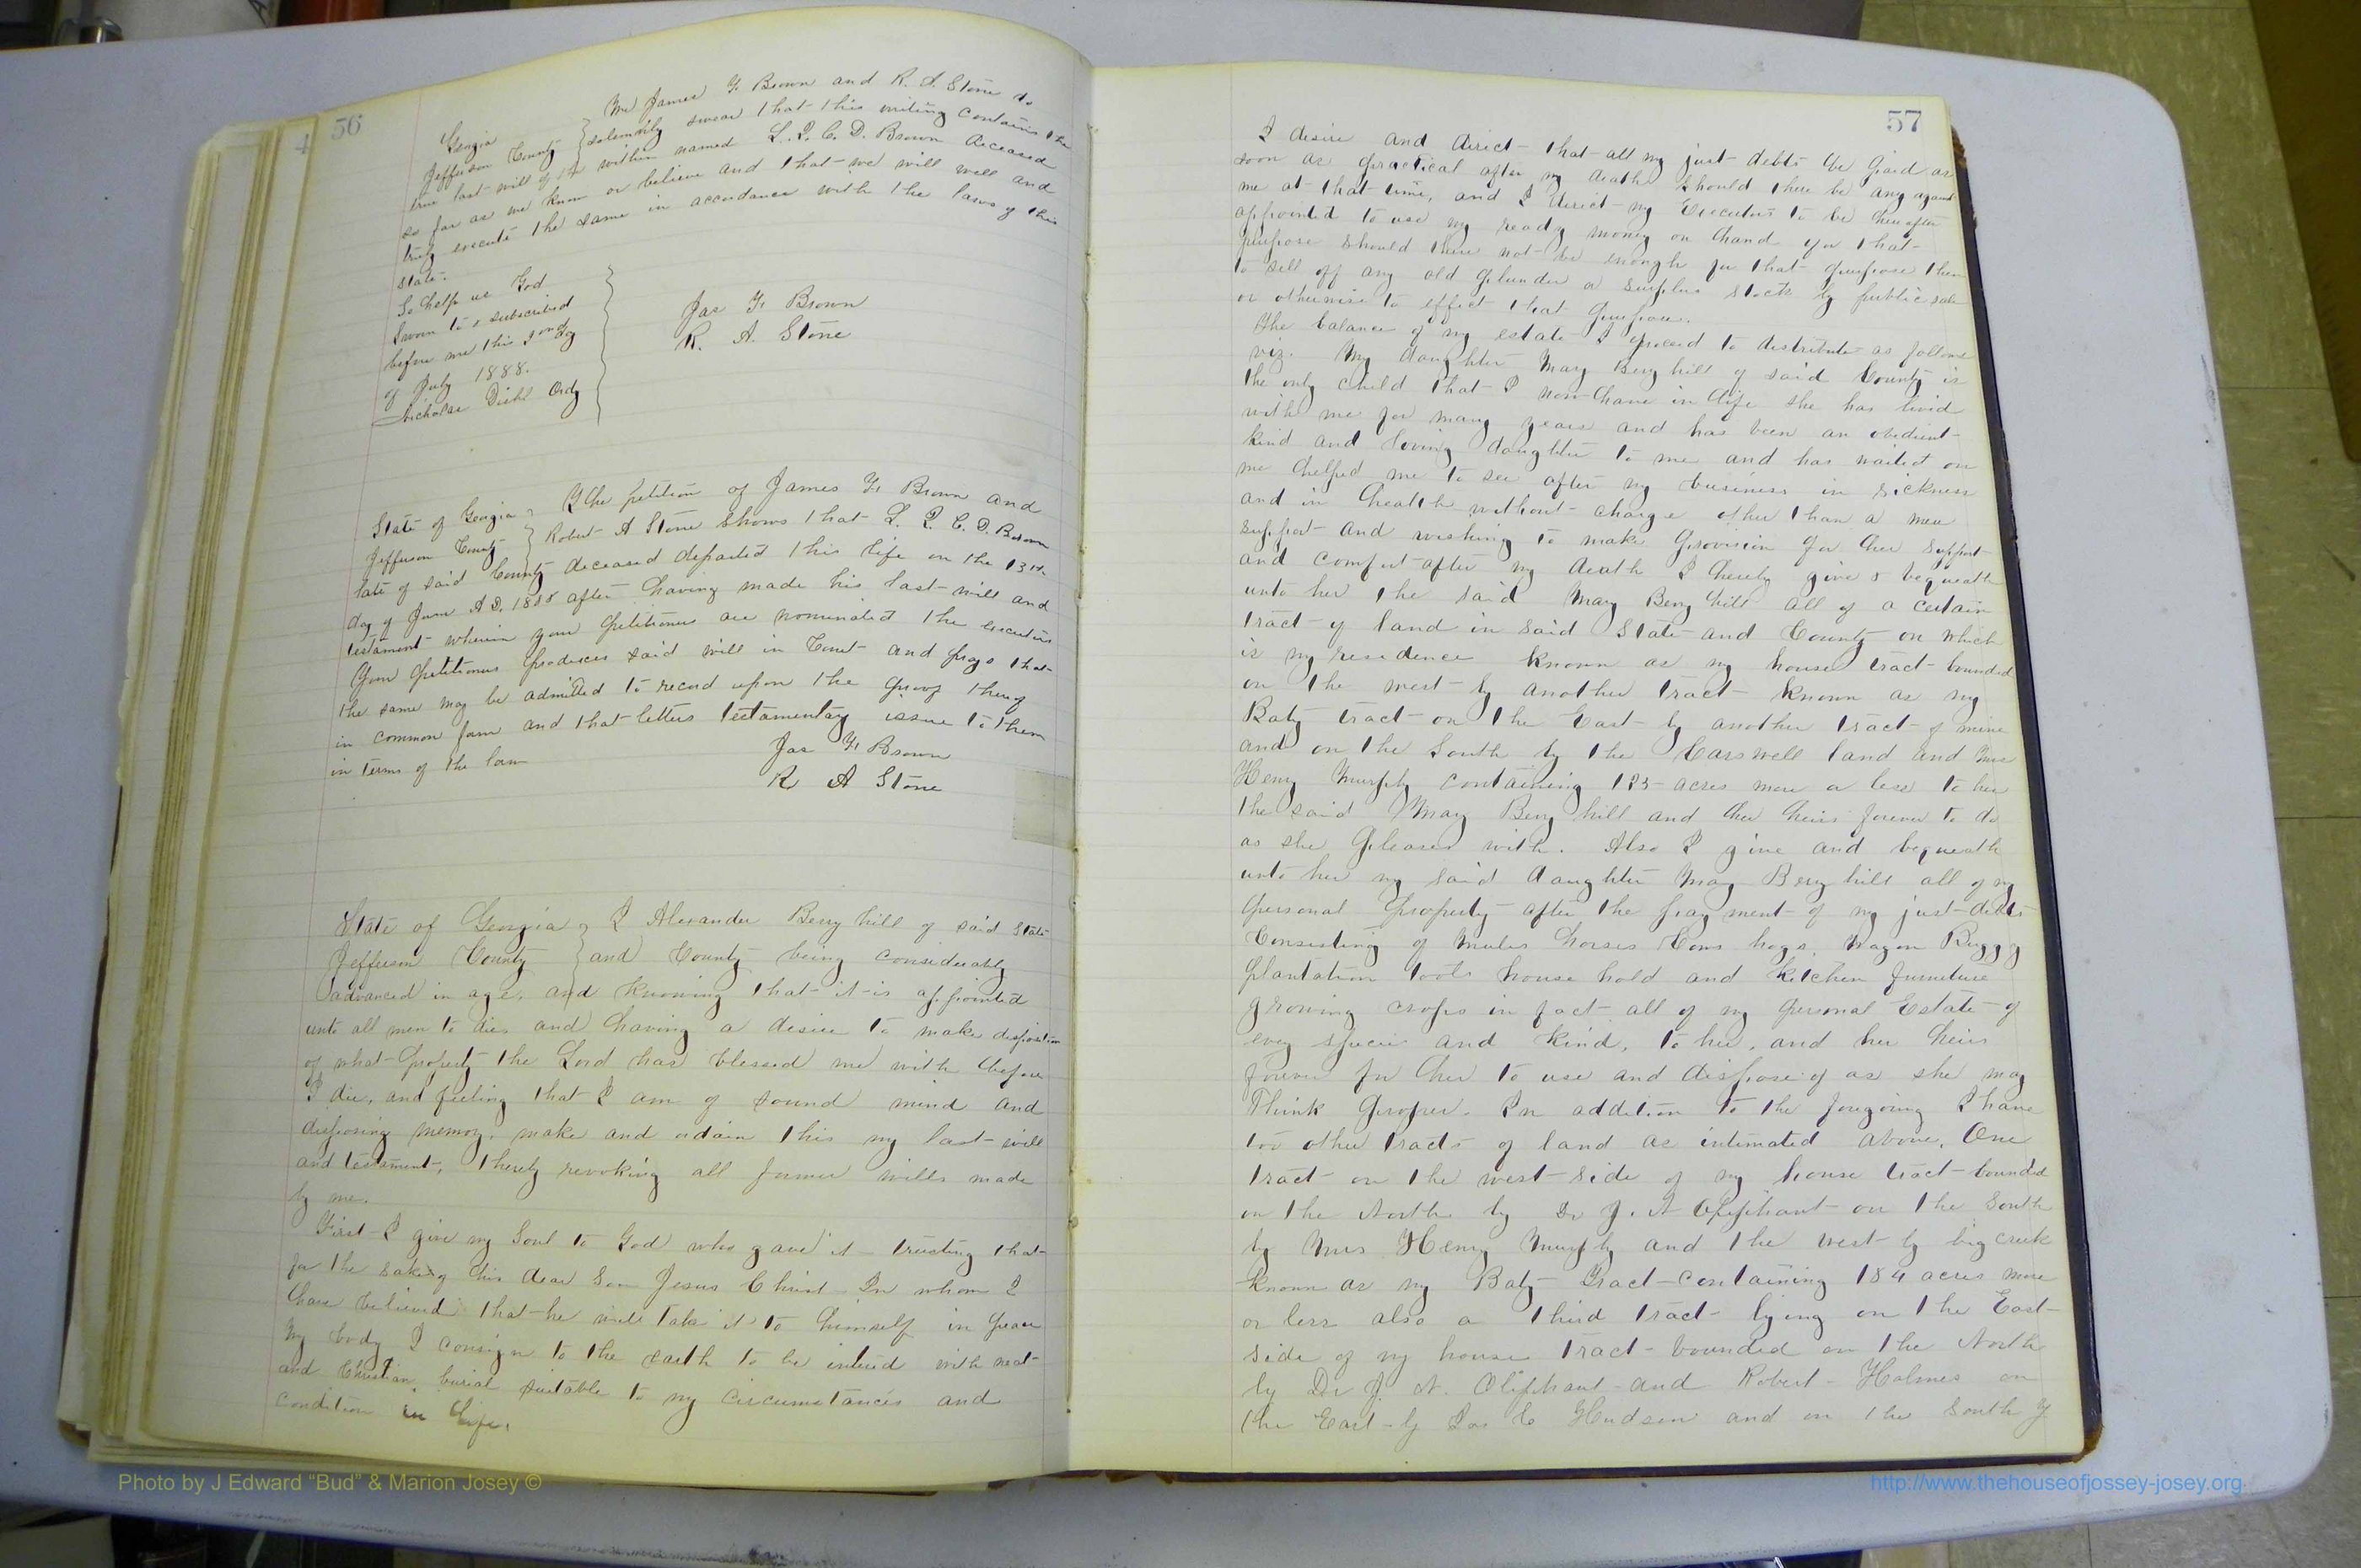 56
Georgia
Jefferson County
We James F. Brown and R. A. Stone do
solemnly swear that this writing contains the
true last will of the within named L. Q. C. D. Brown deceased
so far as we know or believe and that we will well and
truly execute the same in accordance with the laws of this
state.
So help us God
Sworn to & subscribed
before me this 2nd day
of July 1888.
Nicholas Diehl Ordy
Jas F. Brown
R. A. Stone
State of Georgia
Jefferson County
The petition of James F. Brown and
Robert A Stone shows that L. Q. C. D. Brown
late of said County deceased departed this life on the 13th
day of June A.D. 1888 after having made his last will and
testament wherein your petitioners are nominated the executors
Your petitioners produces said will in Court and prays that
the same may be admitted to record upon the proof thereof
in common form and that letters testamentary issue to them
in terms of the law
Jas F. Brown
R A Stone
State of Georgia
Jefferson County
I Alexander Berry hill of said State
and County being considerably
advanced in age, and knowing that it is appointed
unto all men to die and having a desire to make disposition
of what property the Lord has blessed me with before
I die, and feeling that I am of sound mind and
disposing memory, make and ordain this my last will
and testament, hereby revoking all former wills made
by me.
First I give my Soul to God who gave it trusting that
for the sake of his dear Son Jesus Christ In whom I
have believed that he will take it to himself in peace
My body I consign to the earth to be intered with neat
and Christian burial suitable to my circumstances and
condition in life.
57
I desire and direct that all my just debts be paid as
soon as practical after my death should there be any against
me at that time, and I direct my Executors to be hereafter
appointed to use my ready money on hand for that
purpose should there not be enough for that purpose then
to sell off any old plunder or surplus stock by public sale
or otherwise to effect that purpose.
The balance of my estate I proceed to distribute as follows
viz. My daughter Mary Berry hill of said County is
the only child that I now have in life she has lived
with me for many years and has been an obedient
kind and loving daughter to me and has waited on
me helped me to see after my business in sickness
and in health without charge other than a mere
support and wishing to make provision for her support
and comfort after my death I hereby give & bequeath
unto her the said Mary Berry hill all of a certain
tract of land in said State and County on which
is my residence known as my house tract bounded
on the west by another tract known as my
Baty tract on the East by another tract of mine
and on the South by the Carswell land and Mrs
Henry Murphy containing 125 acres more or less to her
the said Mary Berry hill and her heirs forever to do
as she pleases with. Also I give and bequeath
unto her my said daughter Mary Berry hill all of my
personal property after the payment of my just debts
Consisting of mules horses Cows hogs, Wagon Buggy
plantation tools house hold and kitchen furniture
growing crops in fact all of my personal Estate of
every specie and kind, to her, and her heirs
forever for her to use and dispose of as she may
Think proper. In addition to the foregoing I have
too other tracts of land as intimated above, One
tract on the west side of my house tract bounded
on the North by Dr J. N Oliphant on the South
by Mrs Henry Murphy and the west by big creek
known as my Baty Tract containing 184 acres more
or less also a third tract lying on the East
side of my house tract bounded on the North
by Dr J. N. Oliphant and Robert Holmes on
the East by Jas C Hudson and on the South by
Photo by J Edward “Bud” & Marion Josey ©
http://www.thehouseofjossey-josey.org